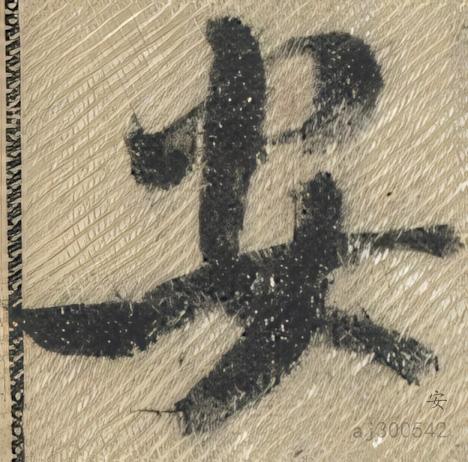 安
安
aj300542